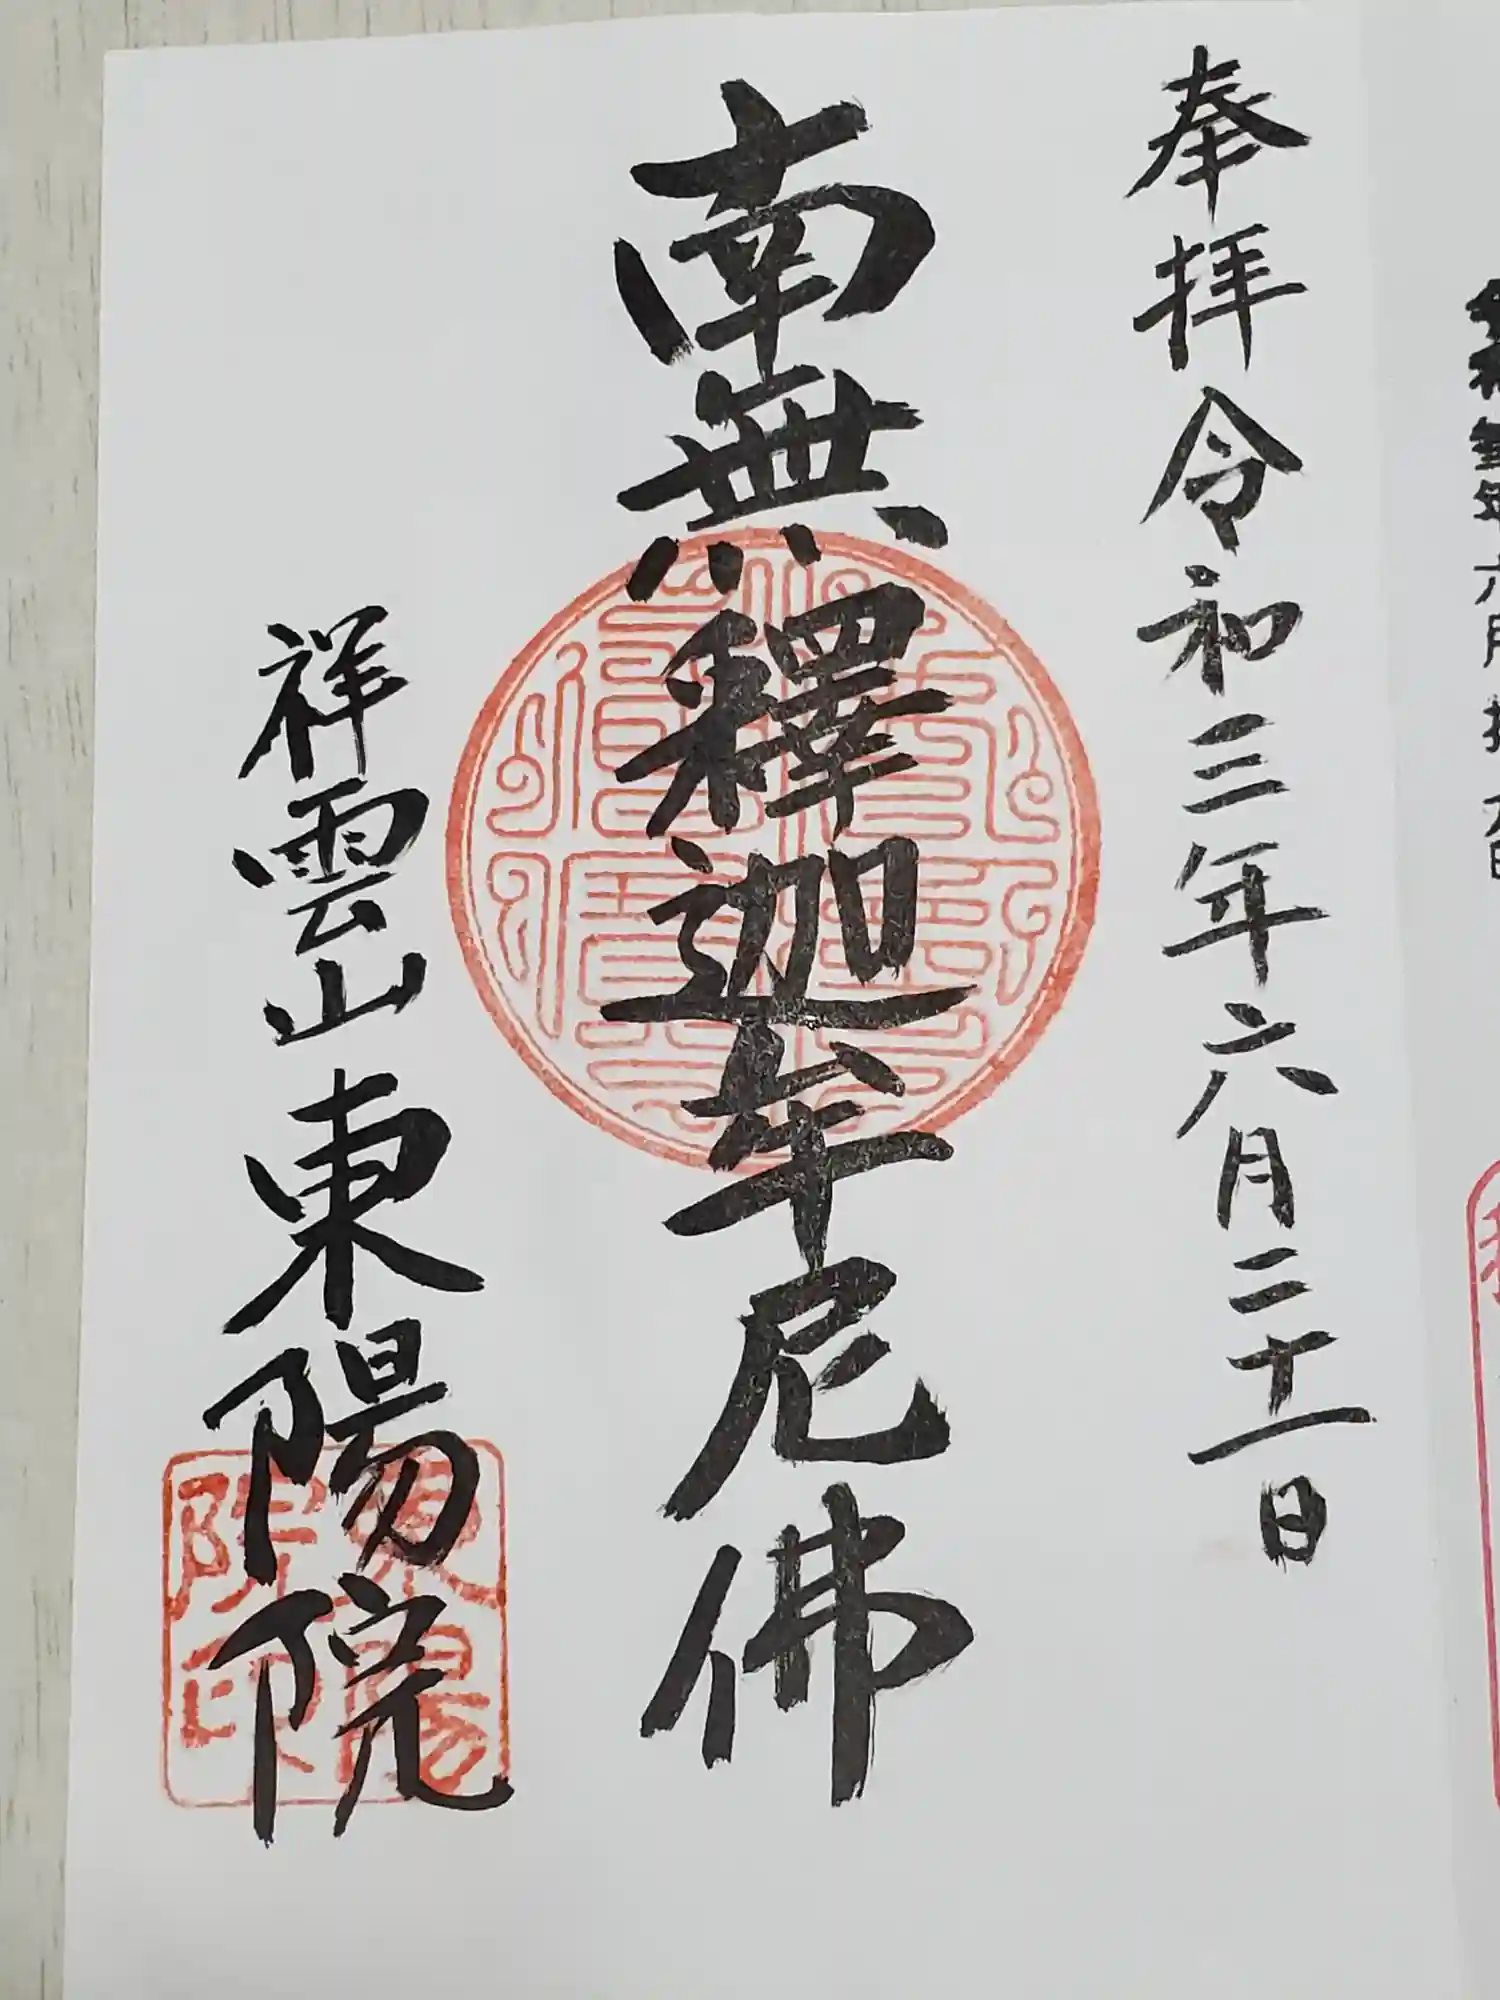 奉拝令和三年六月二十一日
南無釋迦牟尼佛
祥雲山東陽院
東陽
院印